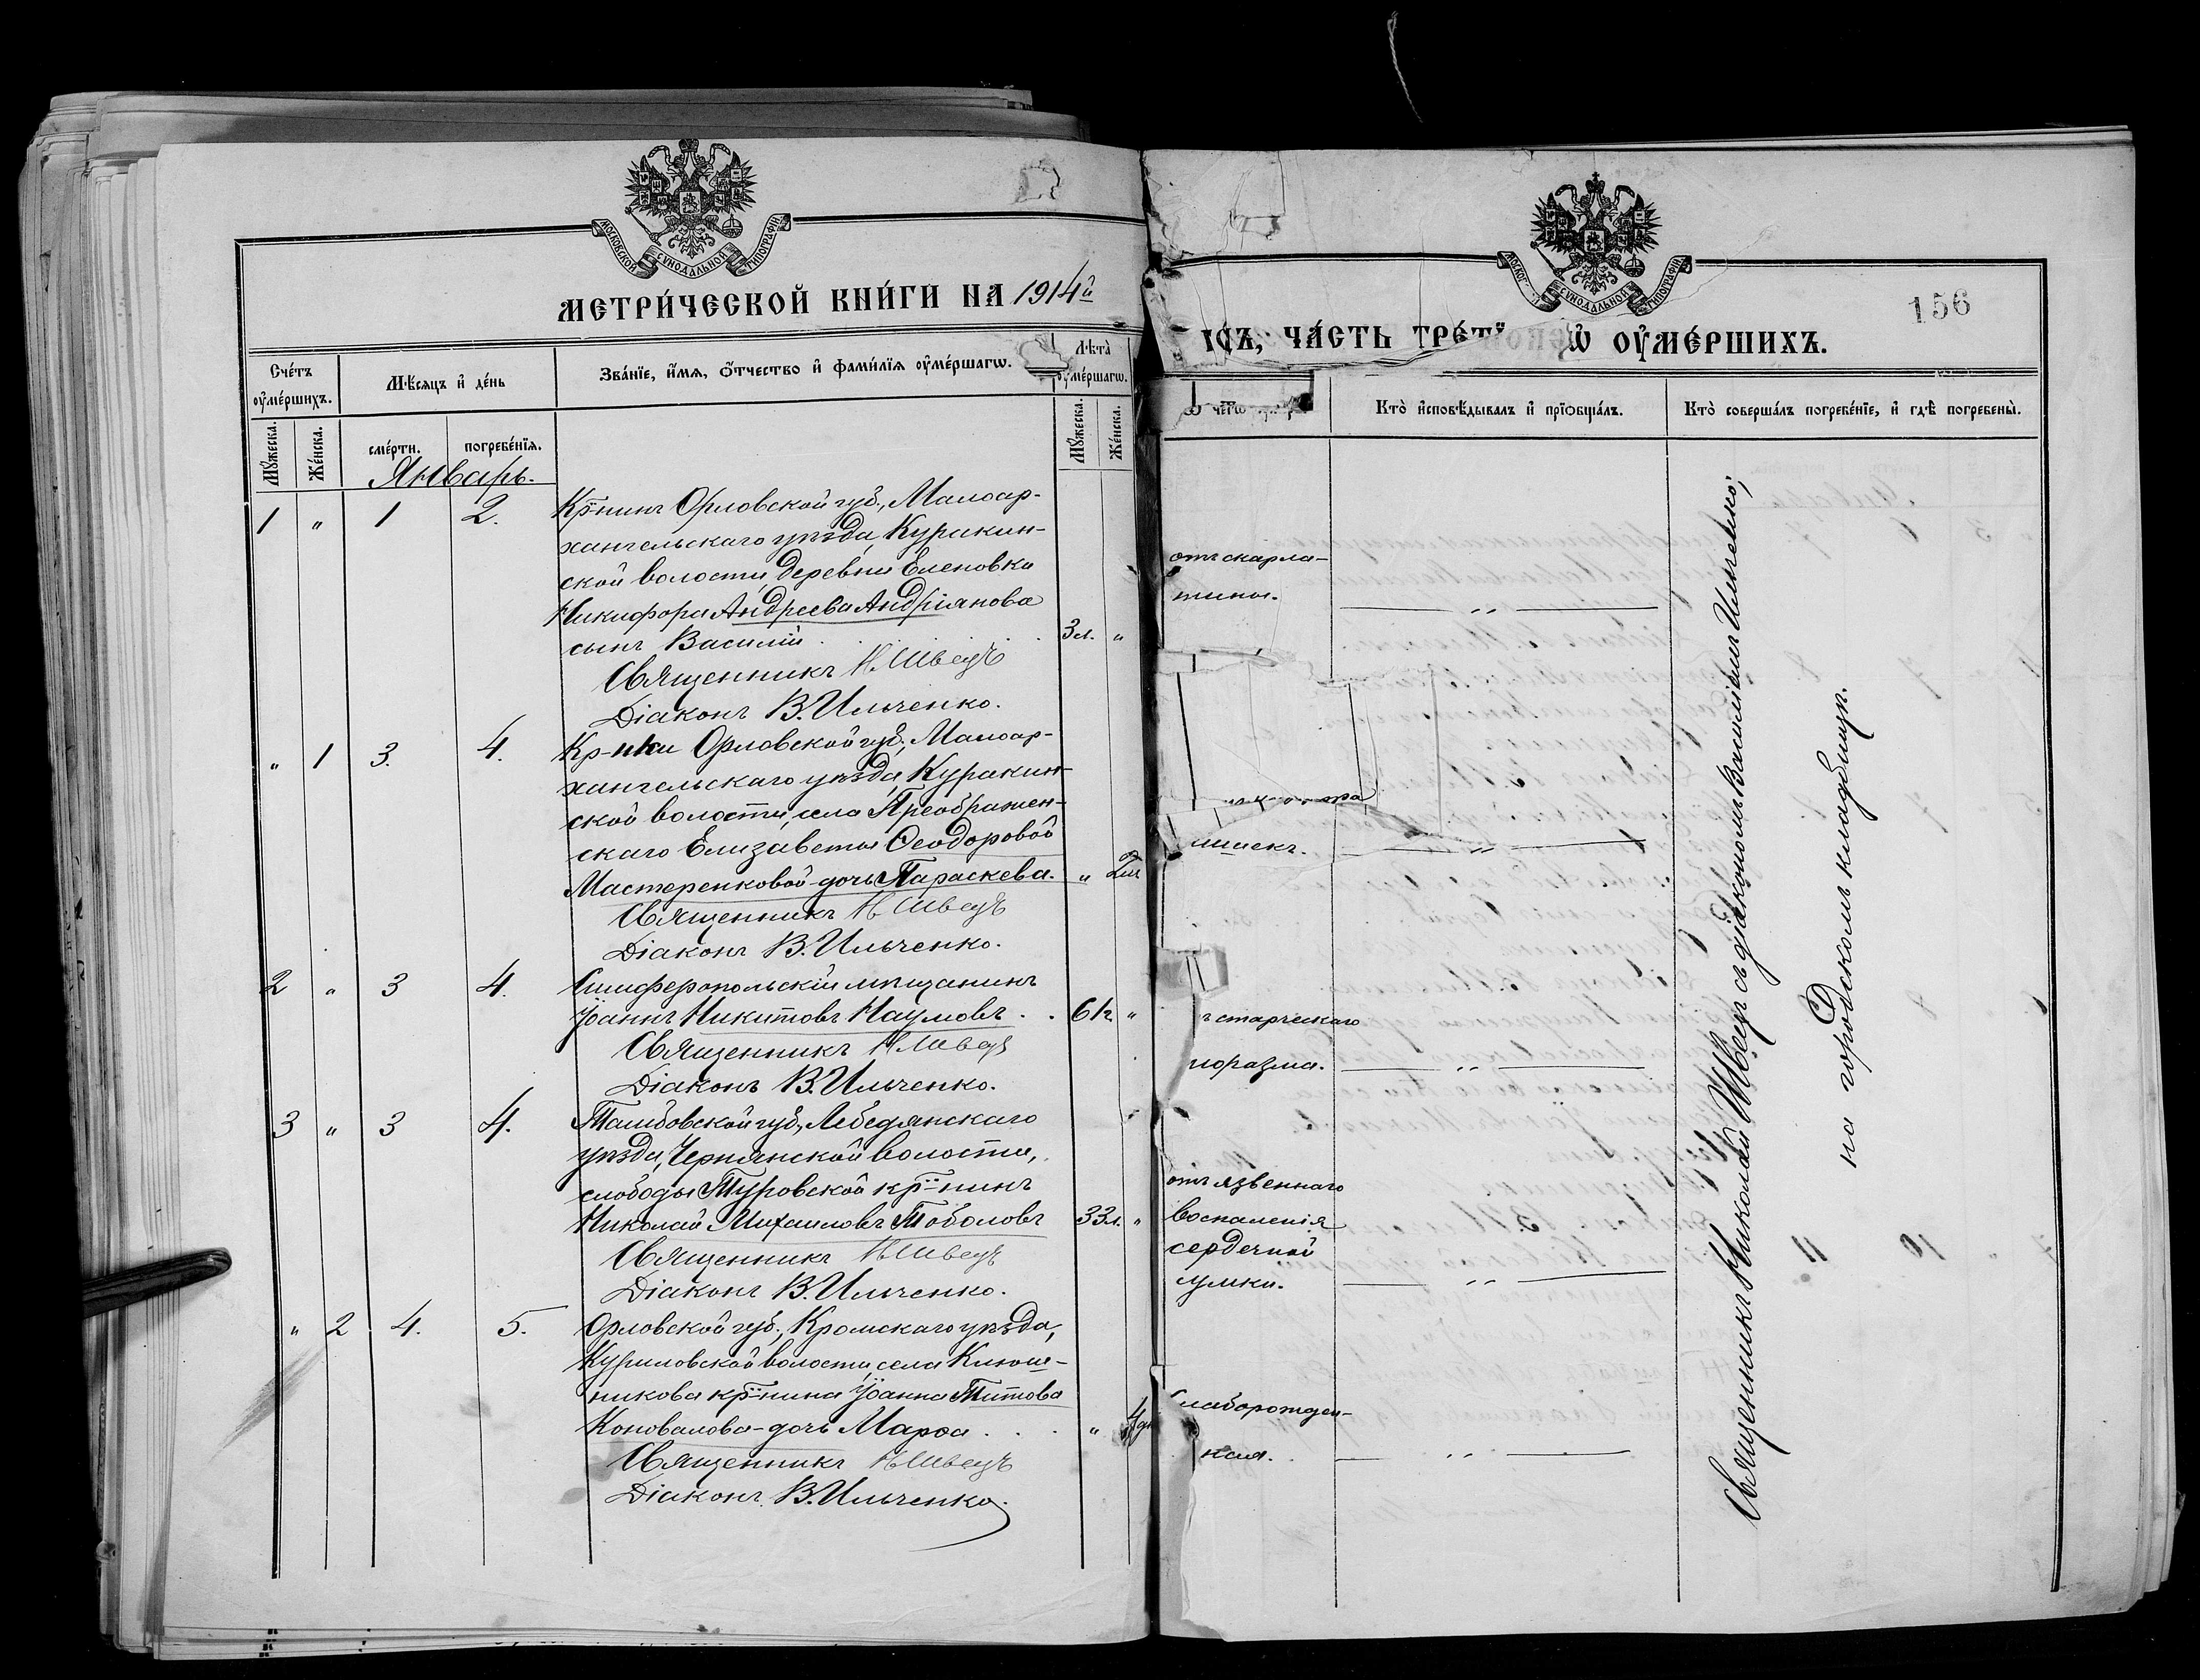 МОСКОВСКОЙ СѴНОДАЛЬНОЙ ТИПОГРАФІИ
МЕТРИ́ЧЕСКОЙ КНИ́ГИ НА 1914й
Сче́тъ ᲂу҆ме́ршихъ.
Мѣ́сяцъ и҆ де́нь
Зва́нїе, и҆́мя, ѻ҆́тчество и҆ фами́лїя ᲂу҆ме́ршагѡ.
Лѣта̀ ᲂу҆ме́ршагѡ.
Мꙋ́жеска. Же́нска. сме́рти. погребе́нїя. Мꙋ́жеска. Же́нска.
Январь.
1 " 1 2. Кр-нинъ Орловской губ., Малоар-
хангельскаго уѣзда, Куракин-
ской волости, деревни Еленовки
Никифора Андреева Андріянова
сынъ Василій . . . . 3 л. "
Священникъ Н. Швецъ
Діаконъ В. Ильченко.
" 1 3. 4. Кр-нки Орловской губ., Малоар-
хангельскаго уѣзда, Куракин-
ской волости, села Преображен-
скаго Елизаветы Ѳеодоровой
Мастеренковой - дочь Параскева. "
Священникъ Н Швецъ
Діаконъ В. Ильченко.
2 " 3 4. Симферопольскій мѣщанинъ
Іоаннъ Никитовъ Наумовъ . . 61 г "
Священникъ Н Швецъ
Діаконъ В. Ильченко.
3 " 3 4. Тамбовской губ., Лебедянскаго
уѣзда, Чернянской волости,
слободы Туровской кр-нинъ
Николай Михаиловъ Тоболовъ 33 л. "
Священникъ Н Швецъ
Діаконъ В. Ильченко.
" 2 4. 5. Орловской губ., Кромскаго уѣзда,
Куриловской волости, села Клюш-
никова кр-нина Іоанна Титова
Коновалова - дочь Марѳа . . . " 4 дн
Священникъ Н Швецъ
Діаконъ В. Ильченко.
СѴНОДАЛЬНОЙ ТИПОГРАФІИ
156
ЧА́СТЬ ТРЕ́Т Ѡ҆ ОУ҆МЕ́РШИХЪ.
Кто̀ и҆сповѣ́дывалъ и҆ прїѡбща́лъ.
Кто̀ соверша́лъ погребе́нїе, и҆ гдѣ̀ погребены̀.
отъ скарла-
тины. — " —
шекъ. — " —
старческаго
поразма. — " —
отъ язвеннаго
воспаленія
сердечной
умки. — " —
слаборожден-
ная. — " —
Священникъ Николай Швецъ съ діакономъ Василіемъ Ильченко;
на городскомъ кладбищѣ.